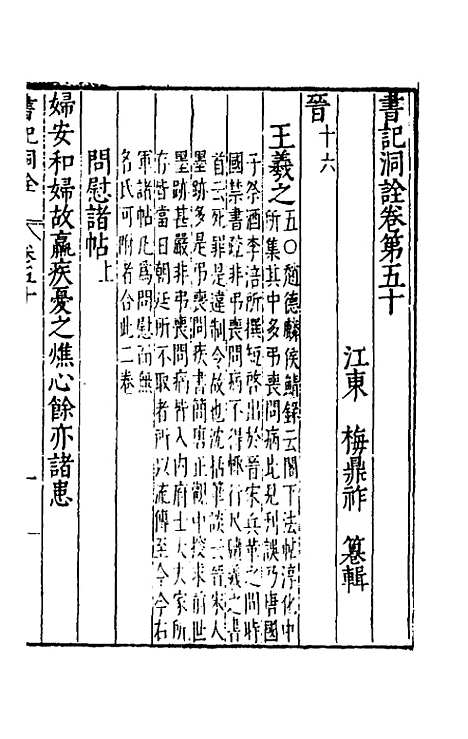 書記洞詮卷第五十
江東 梅鼎祚 纂輯
晉十六
王羲之五〇趙德麟侯鯖錄云閣下法帖淳化中
所集其中多弔喪問病此見刋誤乃唐國
子祭酒李涪所撰短啓出於晉宋兵革之間時
國禁書䟽非弔喪問病不得輒行尺牘羲之書
首云死罪是違制令故也沈括筆談云晉宋人
墨跡多是弔喪問疾書簡唐正觀中搜求前世
墨跡甚嚴非弔喪問病皆入内府士大夫家所
存皆當日朝廷所不取者所以流傳至今今右
軍諸帖凡爲問慰而無
名氏可附者合此二卷
問慰諸帖上
婦安和婦故羸疾憂之燋心餘亦諸患
書記洞詮 卷五十 一